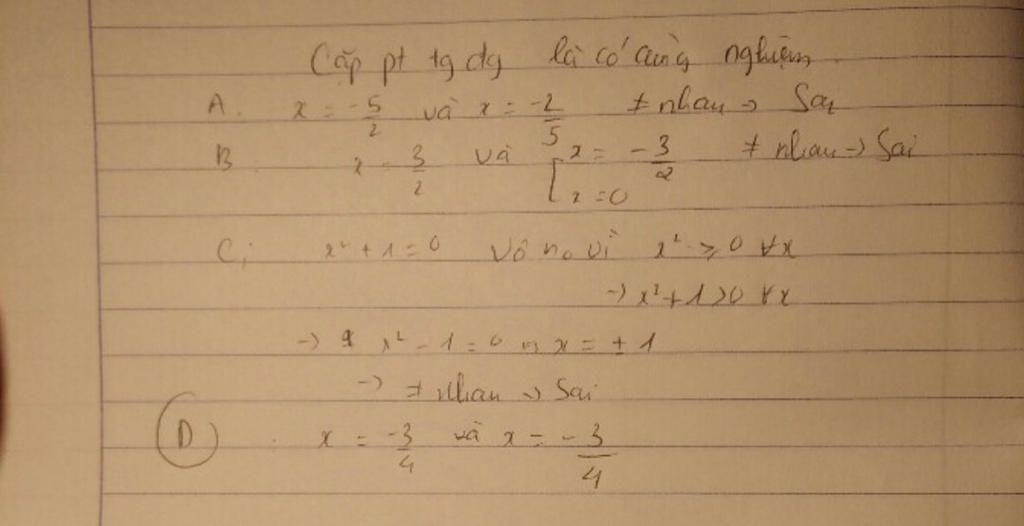 Cặp pt tg đg là có cùng nghiệm
A. x = -5/2 và x = -2/5 ≠ nhau → Sai
B x = 3/2 và [x = -3/2 ≠ nhau → Sai
x = 0
C; x² + 1 = 0 vô n₀ vì x² ≥ 0 ∀x
→ x² + 1 > 0 ∀x
→ x² - 1 = 0 → x = ± 1
→ ≠ nhau → Sai
D x = -3/4 và x = -3/4